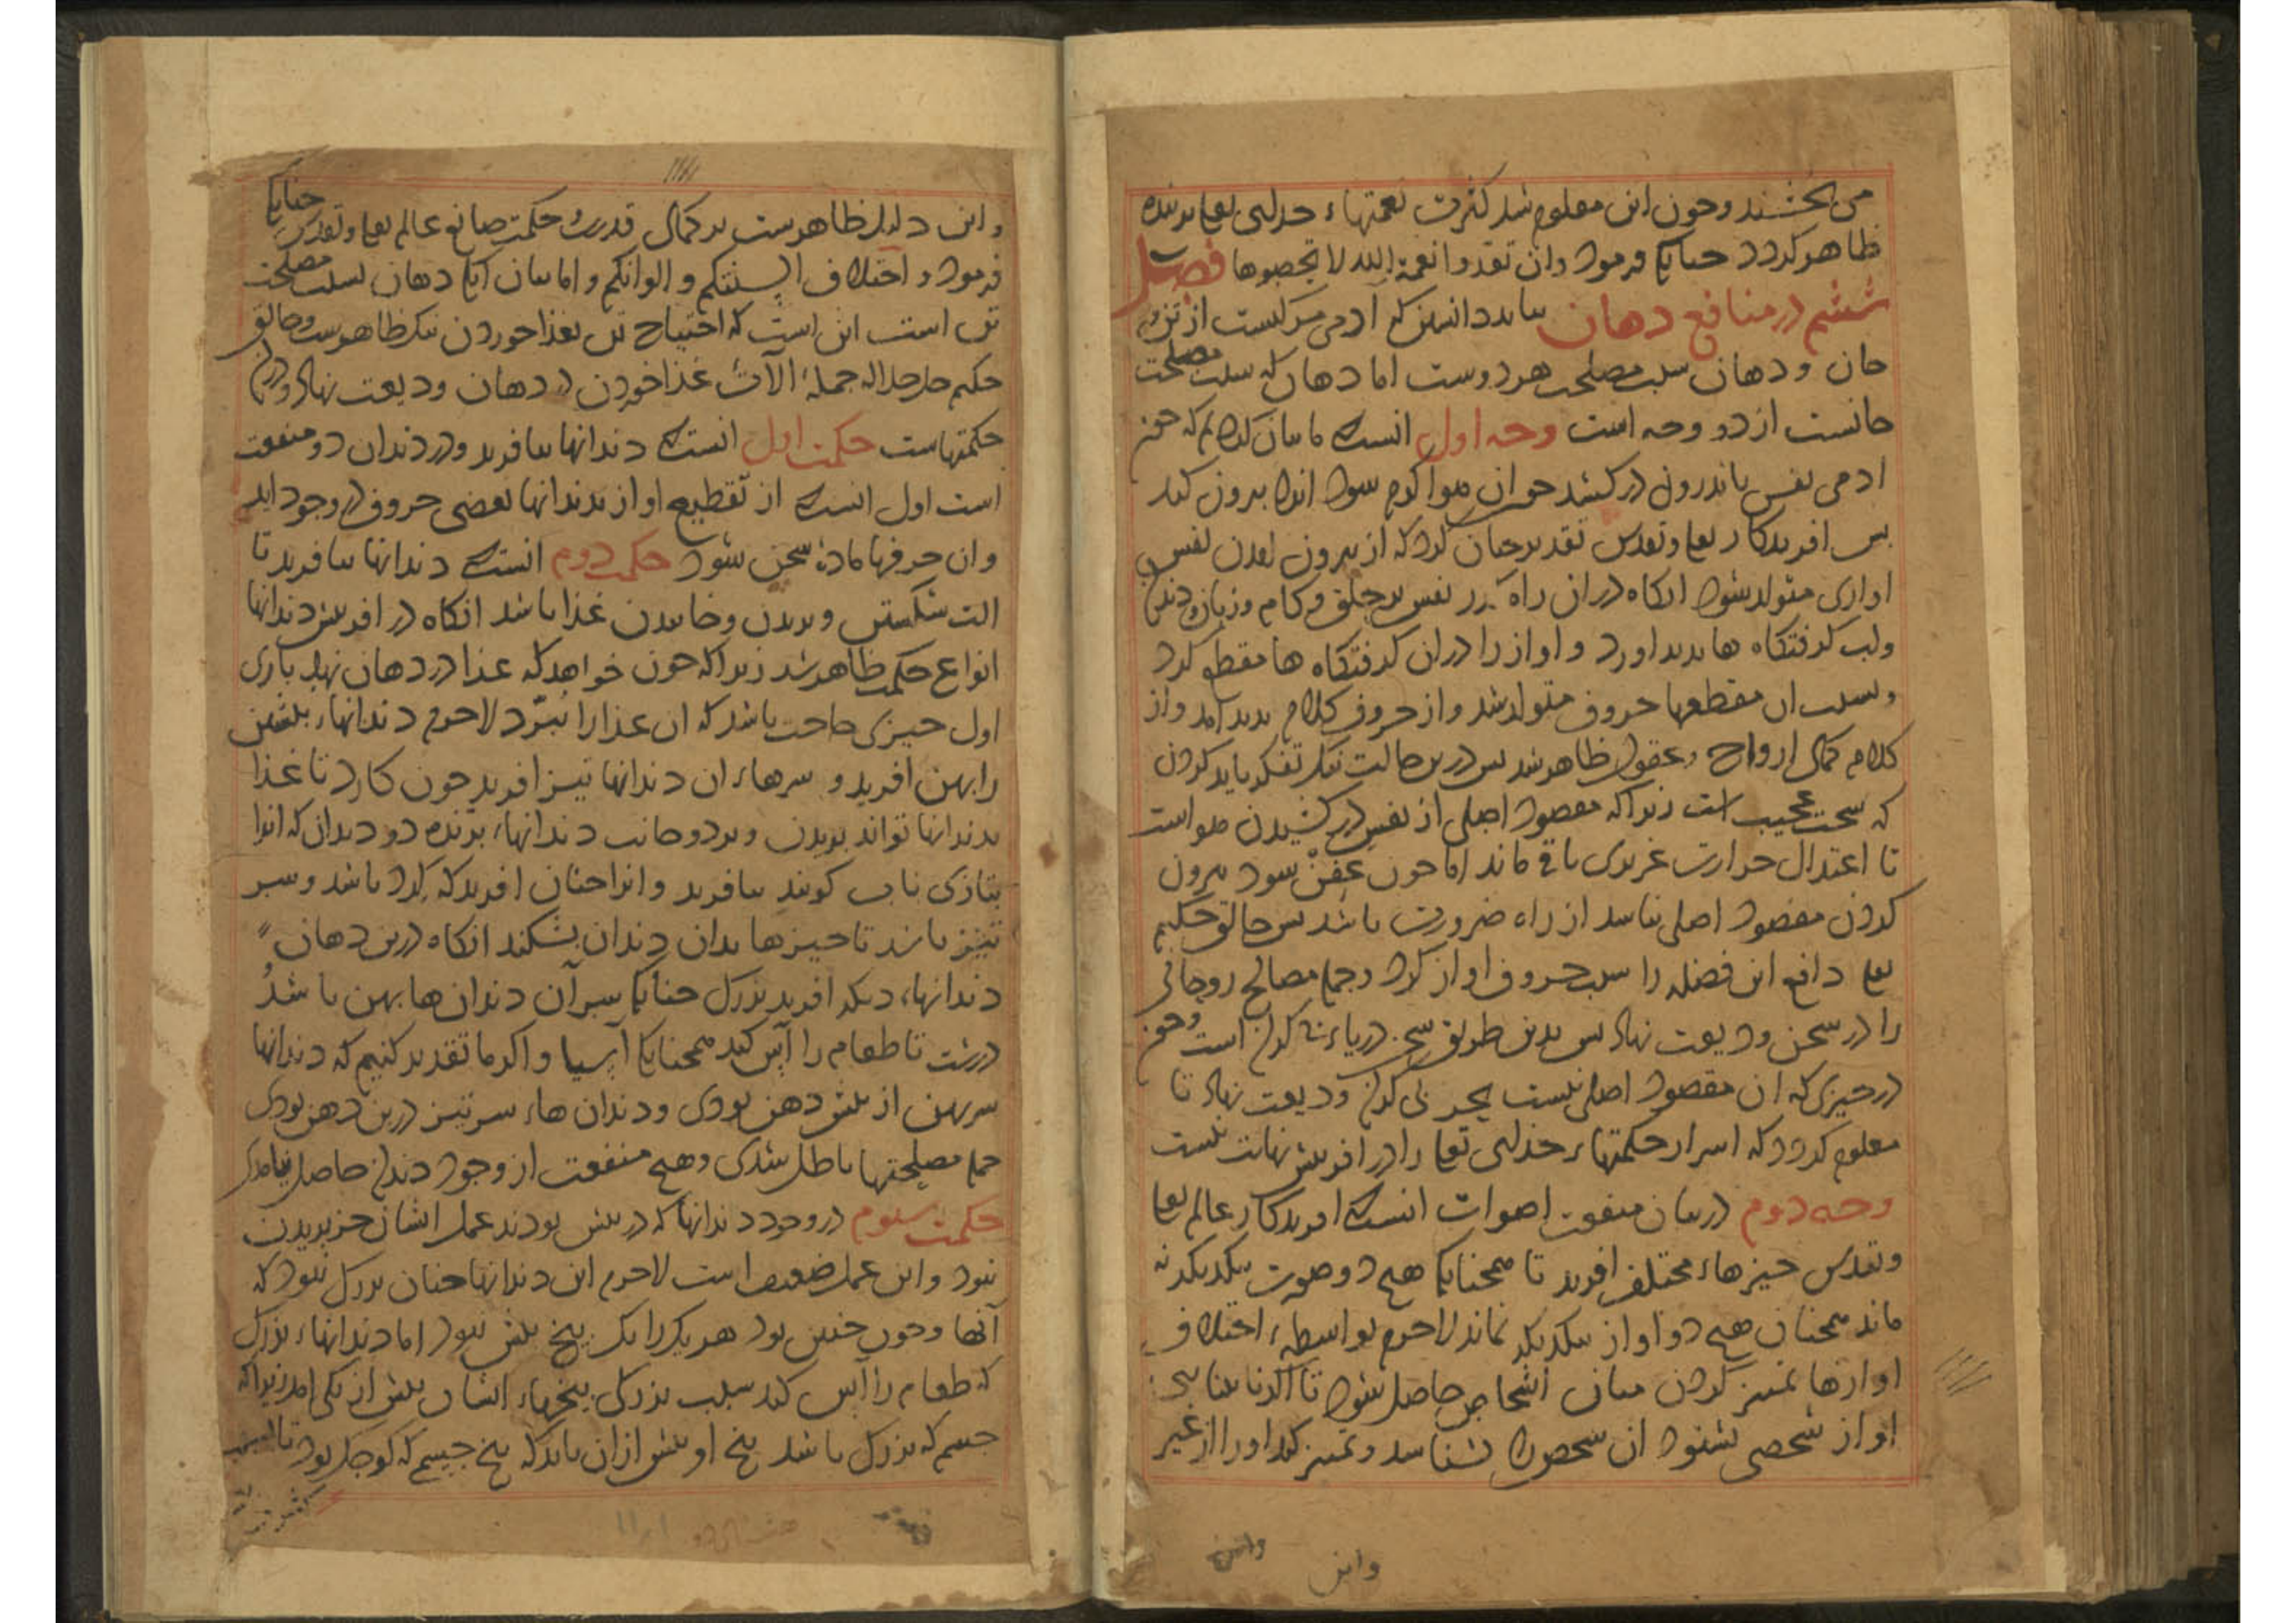 می بخشند و چون این معلوم شد کثرت نعمتهاء خدای تعا بر بنده
ظاهر کردد چنانک فرمود وان تعدوا نعمة الله لا تحصوها فصل
ششم در منافع دهان بباید دانستن که آدمی مرکبست از تن و
جان و دهان سبب مصلحت هر دوست اما دهان که سبب مصلحت
جانست از دو وجه است وجه اول انست که ما بیان کرده ایم که چون
ادمی نفس باندرون درکشد چون ان هوا کرم شود انرا بیرون کند
پس افریدکار تعا و تقدس تقدیر چنان کرد که از بیرون امدن نفس
اوازی متولد شود انکاه در ان راه کذر نفس بر حلق و کام و زبان و دندان
و لب کرفتکاه ها بدید اورد و اواز را در ان کرفتکاه ها مقطع کرد
و بسبب ان مقطعها حروف متولد شد و از حروف کلام بدید امد و از
کلام کمال ارواح و عقول ظاهر شد پس درین حالت نیک تفکر باید کردن
که سخت عجیب است زیرا که مقصود اصلی از نفس در کشیدن هواست
تا اعتدال حرارت غریزی باقی ماند اما چون عفن شود بیرون
کردن مقصود اصلی نباشد از راه ضرورت باشد پس خالق حکیم
تعا دافع این فضله را سبب حروف اواز کرد و جمله مصالح روحانی
را در سخن ودیعت نهاد پس بدین طریق
در چیزی که ان مقصود اصلی نیست ودیعت نهاد تا
معلوم کردد که اسرار حکمتهاء خدای تعا را در افرینش نهایت نیست
وجه دوم در بیان منفعت اصوات انست که افریدکار عالم تعا
و تقدس چیزهاء مختلف افرید تا همچنانک هیچ دو صورت بیکدیکر نه
ماند همچنان هیچ دو اواز بیکدیکر نماند لاجرم بواسطهء اختلاف
اوازها تمییز کردن میان اشخاص حاصل شود تا اکر نابینا
اواز شخصی بشنود ان شخص را بشناسد و تمییز کند او را از غیر
واین
واین
و این دلیل ظاهرست بر کمال قدرت و حکمت صانع عالم تعا و تقدس چنانک
فرمود و اختلاف السنتکم و الوانکم و اما بیان آنک دهان سبب مصلحت
تن است این است که احتیاج تن بغذا خوردن نیک ظاهرست و خالق
حکیم جل جلاله جملهٔ الآت غذا خوردن در دهان ودیعت نهاد و دران
حکمتهاست حکمت اول انست که دندانها بیافرید و در دندان دو منفعت
است اول انست که از تقطیع اواز بدندانها بعضی حروف در وجود اید
وان حرفها مادهٔ سخن شود حکمت دوم انست که دندانها بیافرید تا
الت شکستن و بریدن و خاییدن غذا باشد انکاه در افرینش دندانها
انواع حکمت ظاهر شد زیرا که چون خواهد که غذا در دهان نهد باری
اول چیزی حاجت باشد که ان غذا را ببرّد لاجرم دندانهاء پیشین
را پهن افرید و سرهاء ان دندانها تیز افرید چون کارد تا غذا
بدندانها تواند بریدن و بر دو جانب دندانهاء برنده دو دندان که انرا
بتازی ناب کویند بیافرید و انرا چنان افرید که کرد باشد و سر
تیز باشد تا چیزها بدان دندان بشکند انکاه در بن دهان
دندانهاء دیکر افرید بزرک چنانک سر آن دندان ها پهن باشد و
درشت تا طعام را آس کند همچنانک آسیا و اکر ما تقدیر کنیم که دندانها
سر پهن از پیش دهن بودی و دندان هاء سر تیز در بن دهن بودی
جمله مصلحتها باطل شدی و هیچ منفعت از وجود دندان حاصل نیامدی
حکمت سوم در وجود دندانها که در پیش بودند عمل ایشان جز بریدن
نبود و این عمل ضعیف است لاجرم این دندانها چنان بزرک نبود که
آنها و چون چنین بود هر یک را یک بیخ بیش نبود اما دندانهاء بزرک
که طعام را آس کند سبب بزرکی بیخهاء ایشان بیش از یکی امد زیرا که
جسم که بزرک باشد بیخ او بیش از ان باید که بیخ جسم که کوچک بود تا